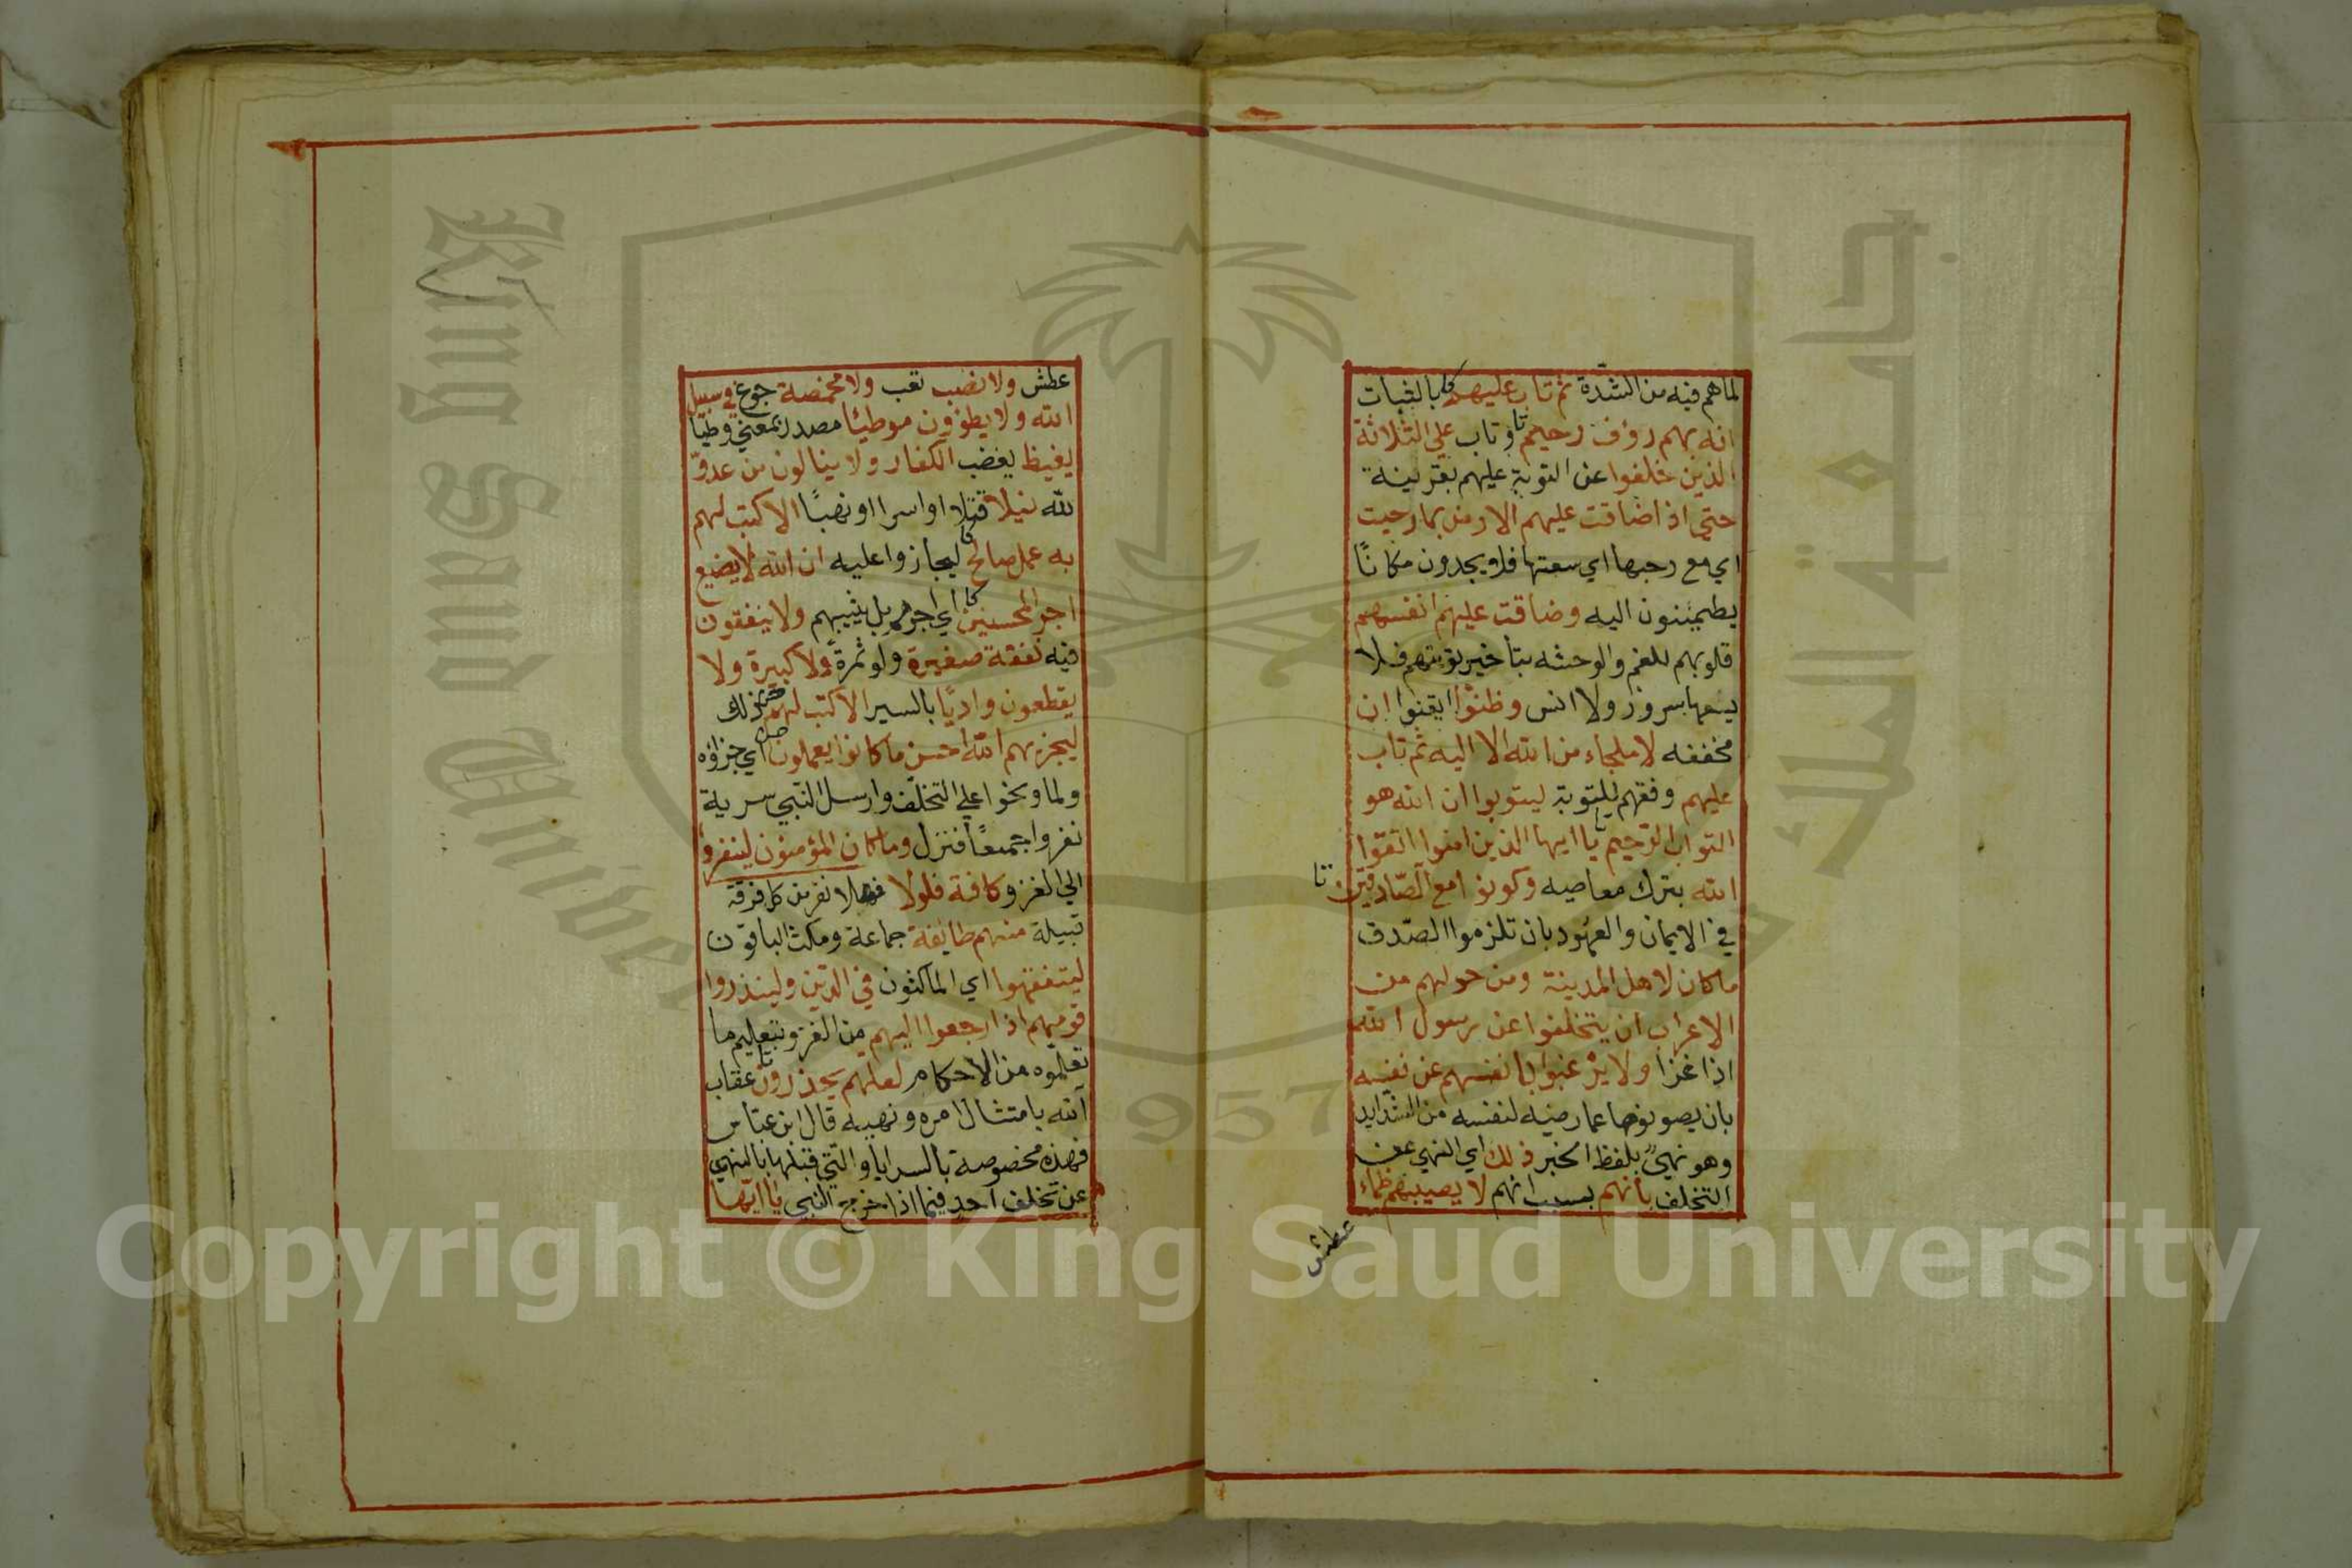 لما هم فيه من الشدّة ثم تاب عليهم بالثبات
انه بهم رؤف رحيم وتاب على الثلاثة
الذين خلفوا عن التوبة عليهم بقرينة
حتى اذا ضاقت عليهم الارض بما رحبت
اي مع رحبها اي سعتها فلا يجدون مكانًا
يطمئنون اليه وضاقت عليهم انفسهم
قلوبهم للغم والوحشه بتأخير توبتهم فلا
يسعها سرور ولا انس وظنّوا ايقنوا ان
مخففه لا ملجاء من الله الا اليه ثم تاب
عليهم وفقهم للتوبة ليتوبوا ان الله هو
التواب الرّحيم يا ايها الذين امنوا اتقوا
الله بترك معاصيه وكونوا مع الصّادقين
في الايمان والعهود بان تلزموا الصّدق
ما كان لاهل المدينة ومن حولهم من
الاعراب ان يتخلفوا عن رسول الله
اذا غزا ولا يرغبوا بانفسهم عن نفسه
بان يصونوها عما رضيه لنفسه من الشدايد
وهو نهيٌ بلفظ الخبر ذلك اي النهي عن
التخلف بأنهم بسبب انهم لا يصيبهم ظماء
عطش
عطش ولا نصب تعب ولا مخمصة جوع في سبيل
الله ولا يطؤون موطيًا مصدر بمعنى وطيًا
يغيظ يغضب الكفار ولا ينالون من عدوّ
لله نيلا قتلا او اسرا او نهبًا الا كتب لهم
به عمل صالح ليجازوا عليه ان الله لا يضيع
اجر المحسنين اي اجرهم بل يثيبهم ولا ينفقون
فيه نفقة صغيرة ولو تمرة ولا كبيرة ولا
يقطعون واديًا بالسير الا كتب لهم ذلك
ليجزيهم الله احسن ما كانوا يعملون اي جزاؤه
ولما وبخوا على التخلّف وارسل النبي سرية
نفروا جميعًا فنزل وما كان المؤمنون لينفروا
الى الغزو كافة فلولا فهلا نفر من كل فرقة
قبيلة منهم طايفة جماعة ومكث الباقون
ليتفقهوا اي الماكثون في الدّين ولينذروا
قومهم اذا رجعوا اليهم من الغزو بتعليم ما
تعلّموه من الاحكام لعلهم يحذرون عقاب
الله بامتثال امره ونهيه قال ابن عبّاس
فهذه مخصوصة بالسرايا والتي قبلها بالنهي
عن تخلف احد فيما اذا خرج النبي يا ايّها
King Saud University
جامعة الملك سعود
1957
Copyright © King Saud University